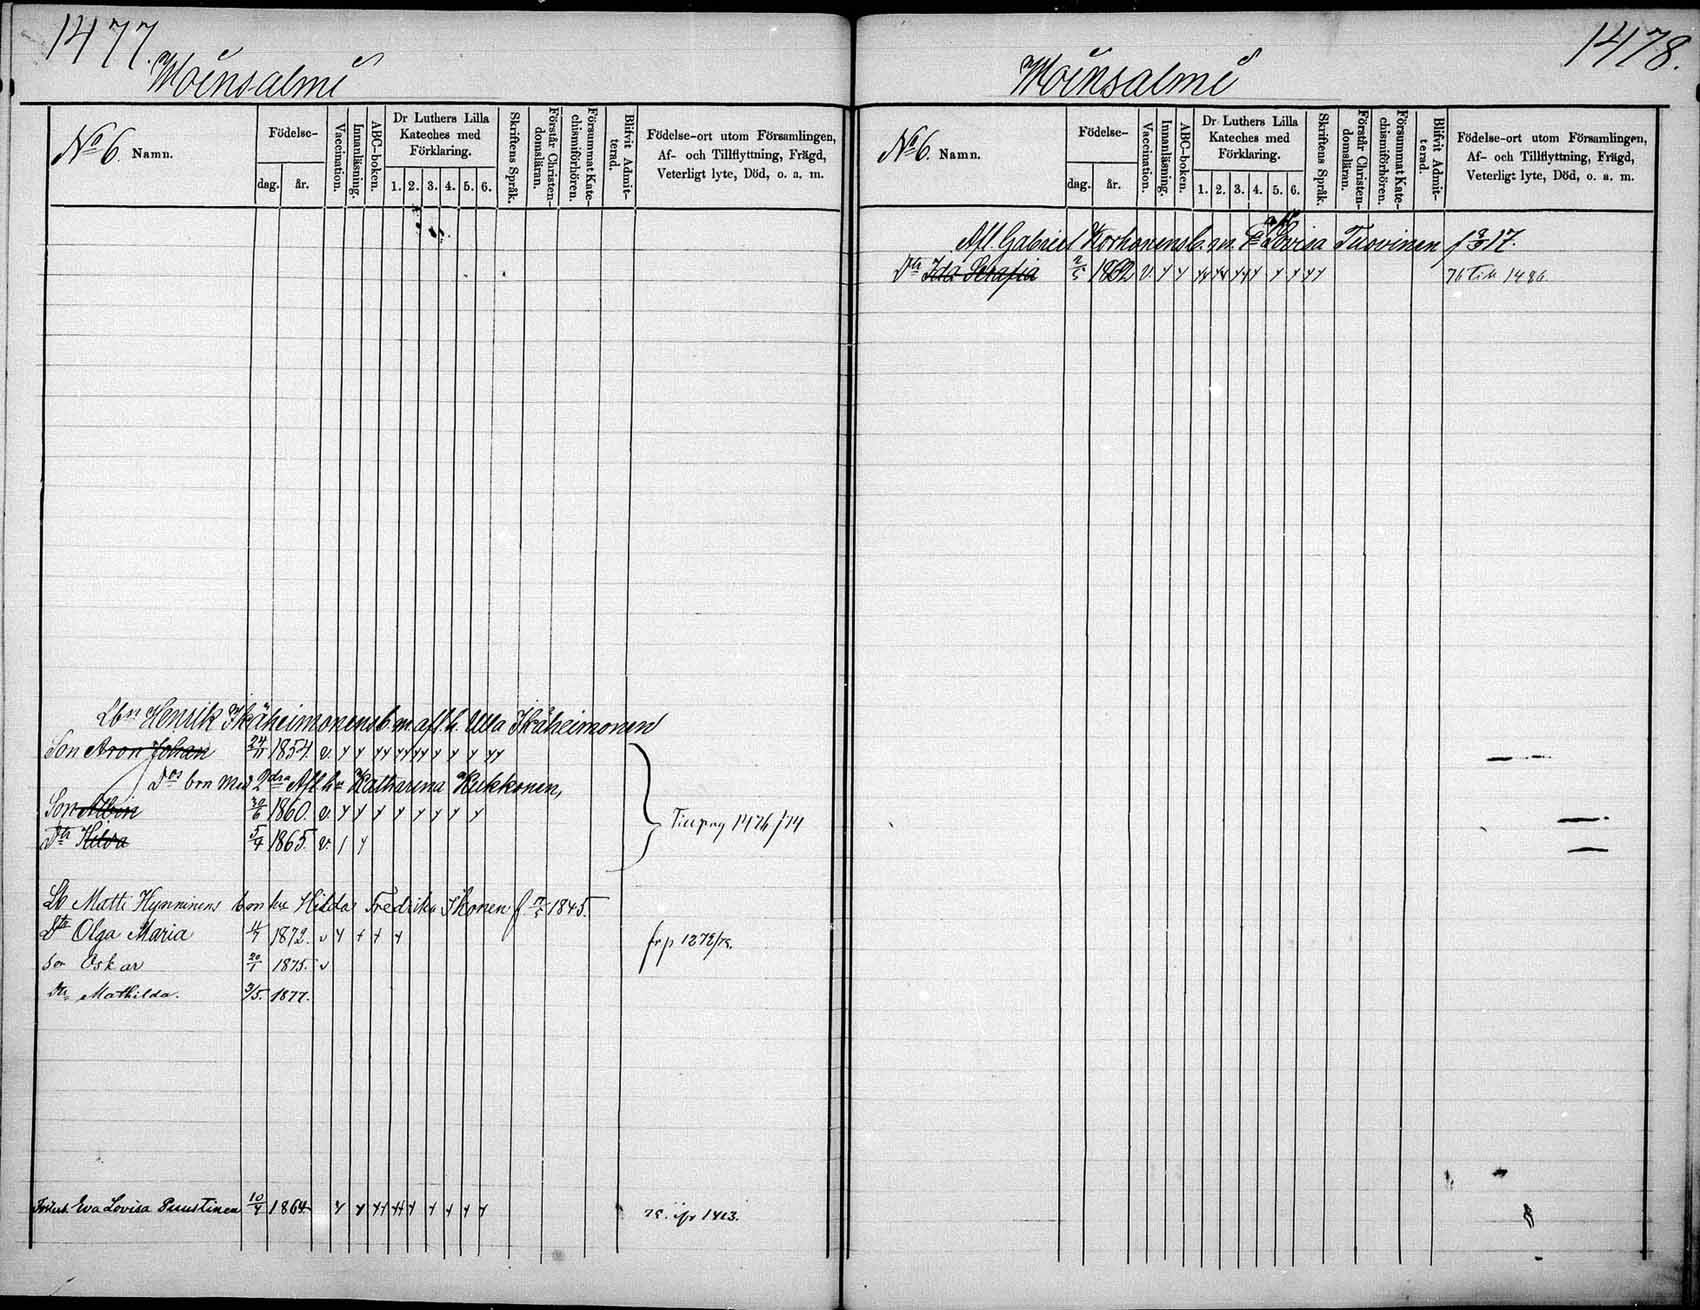 1477.
Moinsalmi
No 6. Namn.
Födelse-
dag. år.
Vaccination.
Innanläsning.
ABC-boken.
Dr Luthers Lilla
Kateches med
Förklaring.
1. 2. 3. 4. 5. 6.
Skriftens Språk.
Förstår Christen-
domsläran.
Försummat Kate-
chismiförhören.
Blifvit Admit-
terad.
Födelse-ort utom Församlingen,
Af- och Tillflyttning, Frägd,
Veterligt lyte, Död, o. a. m.
Lbn Henrik Ikäheimonens b. m. afl. h. Ulla Ikäheimonen
Son Aron Johan 24/11 1854. v.
Dos brn med 2dra Afl. hu Katharina Kukkonen,
Son Albin 20/6 1860. v.
Dtr Hilda 5/4 1865. v.
Till pag 1476/74
Lb Matti Hynninens b. m. hu Hilda Fredrika Ikonen f. 1845.
Dtr Olga Maria 1872. v
fr p 1272/78.
Son Oskar 20/1 1875. v
Dtr Mathilda. 3/5. 1877.
Eva Lovisa Puustinen 10/4 1864 78. ifr 1463.
1478.
Moinsalmi
No 6. Namn.
Födelse-
dag. år.
Vaccination.
Innanläsning.
ABC-boken.
Dr Luthers Lilla
Kateches med
Förklaring.
1. 2. 3. 4. 5. 6.
Skriftens Språk.
Förstår Christen-
domsläran.
Försummat Kate-
chismiförhören.
Blifvit Admit-
terad.
Födelse-ort utom Församlingen,
Af- och Tillflyttning, Frägd,
Veterligt lyte, Död, o. a. m.
Afl. Gabriel Korhonens b. m. Lovisa Tuovinen f 17.
Dtr Ida Serafia 2/5 1862 v. 76 till 1486.